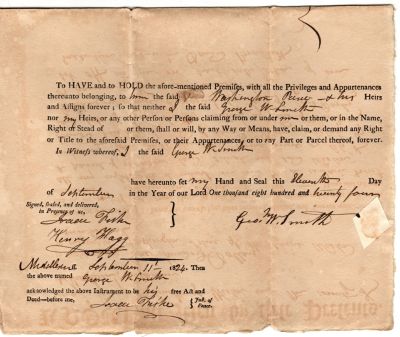 To HAVE and to HOLD the afore-mentioned Premises, with all the Privileges and Appurtenances
thereunto belonging, to him the said Washington & his Heirs
and Assigns forever; so that neither I the said George W. Smith
nor my Heirs, or any other Person or Persons claiming from or under me or them, or in the Name,
Right or Stead of or them, shall or will, by any Way or Means, have, claim, or demand any Right
or Title to the aforesaid Premises, or their Appurtenances, or to any Part or Parcel thereof, forever.
In Witness whereof, I the said George W. Smith
have hereunto set my Hand and Seal this Eleventh Day
of September in the Year of our Lord One thousand eight hundred and twenty four
Signed, sealed, and delivered,
in Presence of us,
Isaac Fiske
Henry
Geo. W. Smith
Middlesex September 11th 1824. Then
the above named George W. Smith
acknowledged the above Instrument to be his free Act and
Deed—before me, Isaac Fiske Just. of Peace.